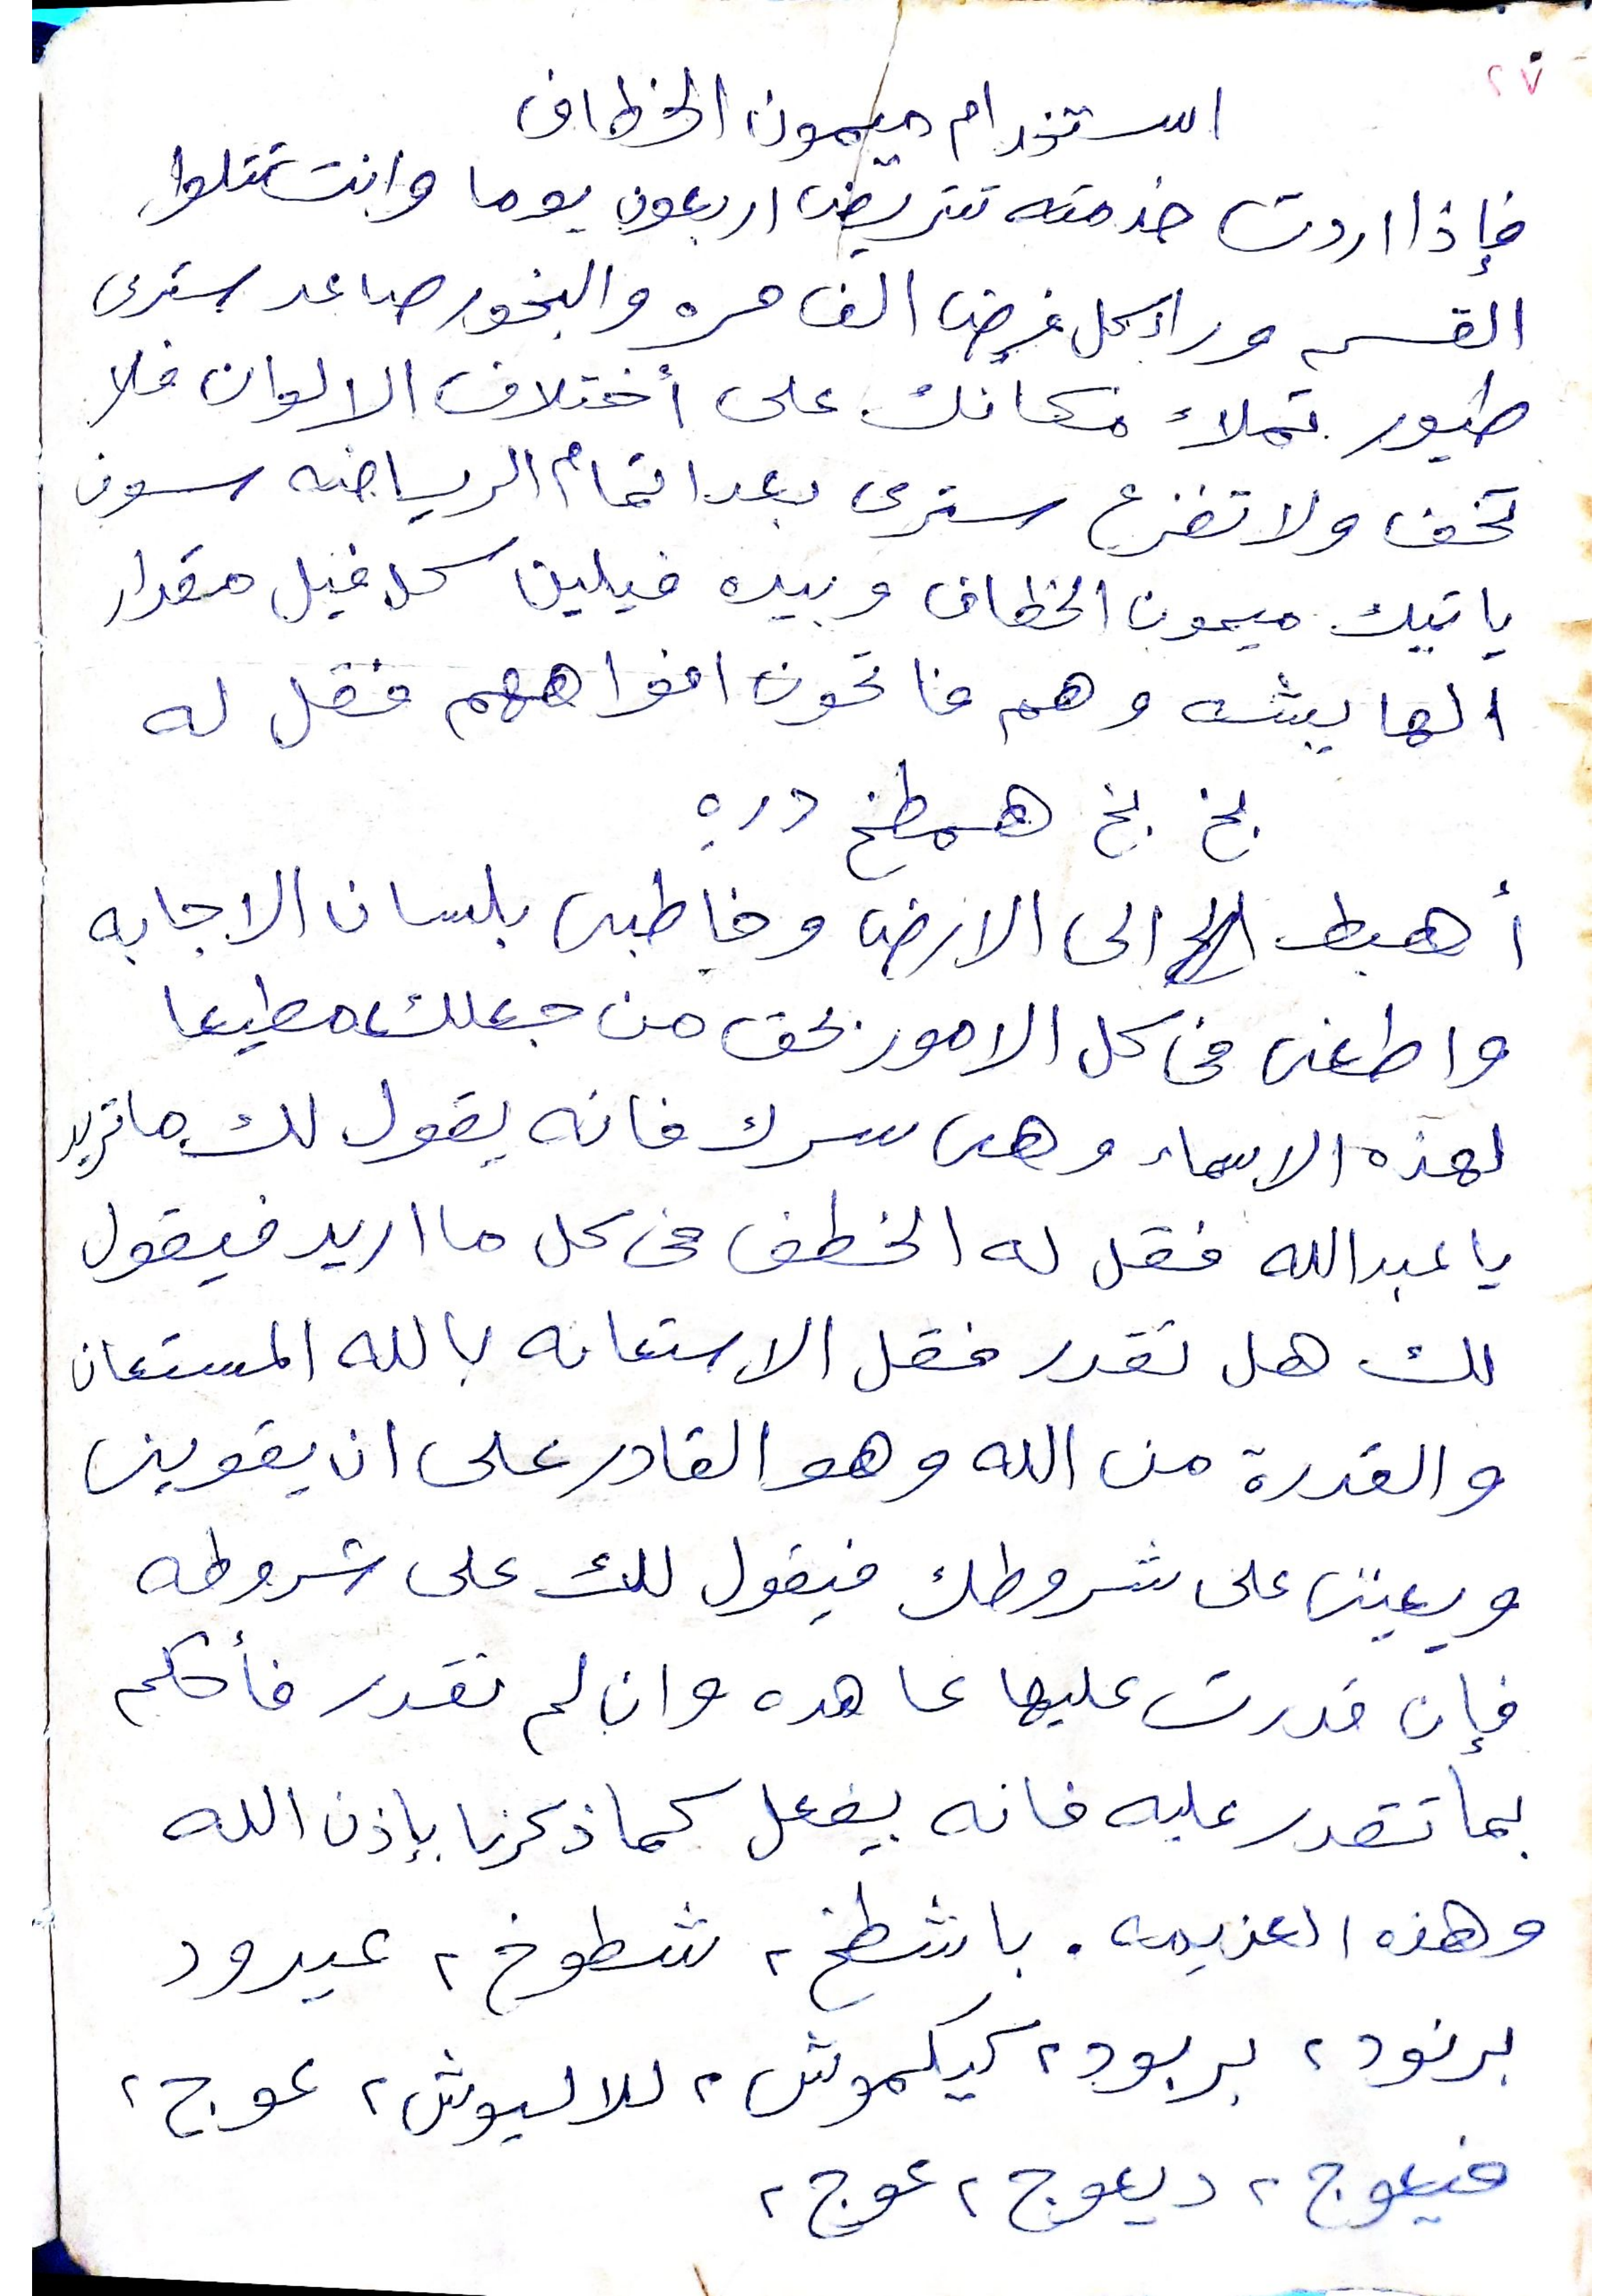 ٢٧
استخدام ميمون الخطاف
فإذا اردت خدمته تتريض اربعون يوما وانت تتلوا
القسم وراء كل فرض الف مره والبخور صاعد سترى
طيور تملاء مكانك على أختلاف الالوان فلا
تخف ولا تفزع سترى بعد اتمام الرياضه سوف
ياتيك ميمون الخطاف وبيده فيلين كل فيل مقدار
الهايشه وهم فاتحون افواههم فقل له
بخ بخ همطخ دره
أهبط الى الارض وخاطبنى بلسان الاجابه
واطعنى فى كل الامور بحق من جعلك مطيعا
لهذه الاسماء وهى سرك فانه يقول لك ما تريد
يا عبدالله فقل له الخطف فى كل ما اريد فيقول
لك هل تقدر فقل الاستعانه بالله المستعان
والقدرة من الله وهو القادر على ان يقوينى
ويعيننى على شروطك فيقول لك على شروطه
فإن قدرت عليها عاهده وان لم تقدر فأحكم
بما تقدر عليه فانه يفعل كما ذكرنا بإذن الله
وهذه العزيمه . باشطخ ٢ شطوخ ٢ عيرود
برنود ٢ بربود ٢ كيكموش ٢ للاليوش ٢ عوج ٢
فيعوج ٢ ديعوج ٢ عوج ٢